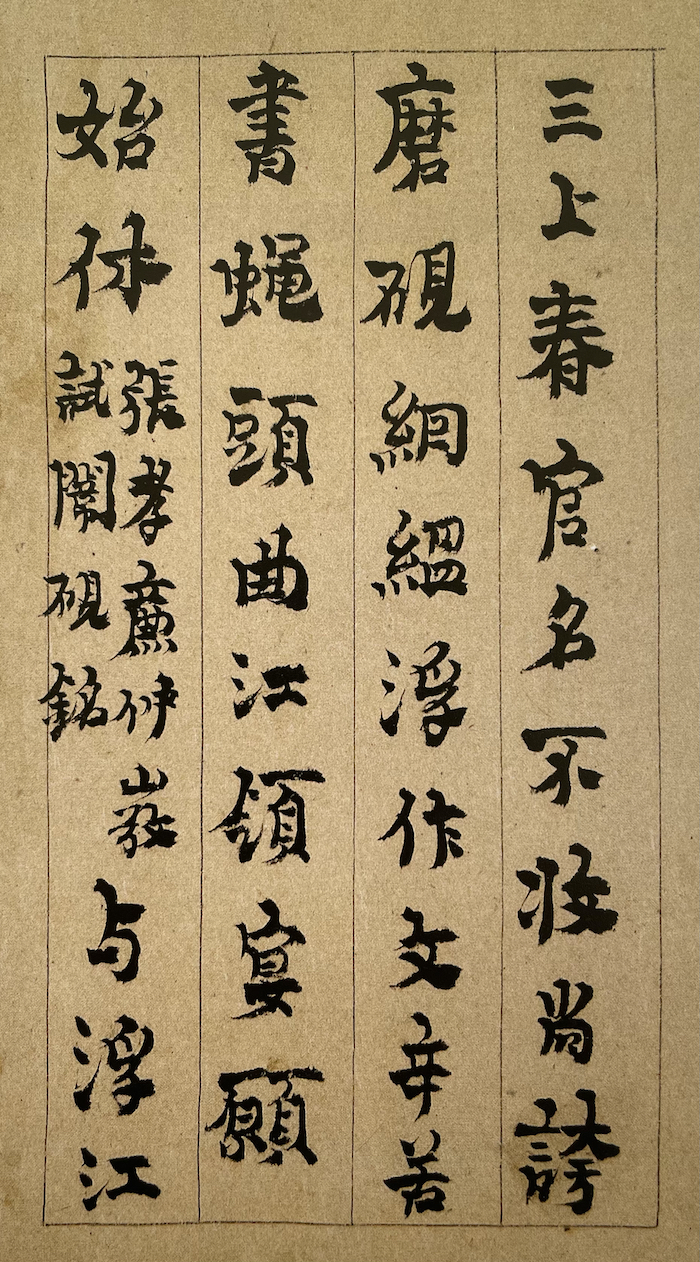 三上春官名不收尚誇
磨硯絪緼浮作文辛苦
書蝇頭曲江領宴願
始休
張孝廉伊巖
試闈硯銘
与浮江